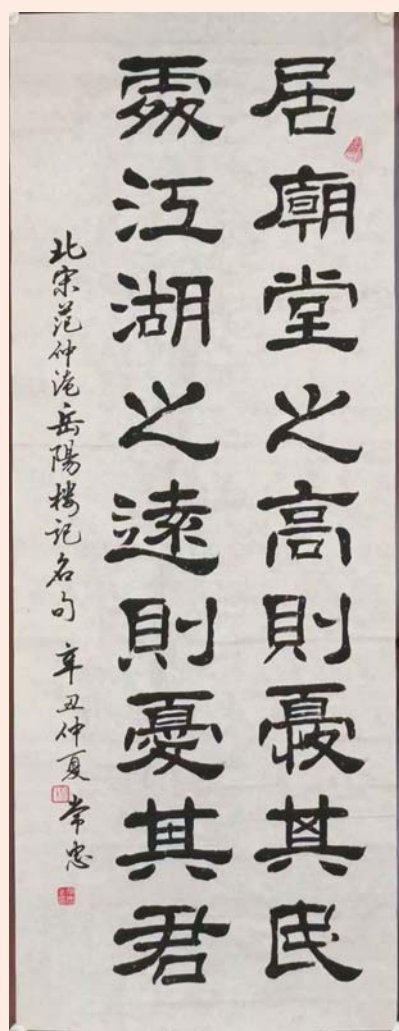 居廟堂之高則憂其民
處江湖之遠則憂其君
北宋范仲淹岳陽樓记名句 辛丑仲夏 常忠